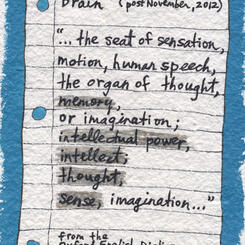 Brain (post November, 2012)
"... the seat of sensation,
motion, human speech,
the organ of thought,
memory,
or imagination;
intellectual power,
intellect;
thought,
sense, imagination..."
from the
Oxford English